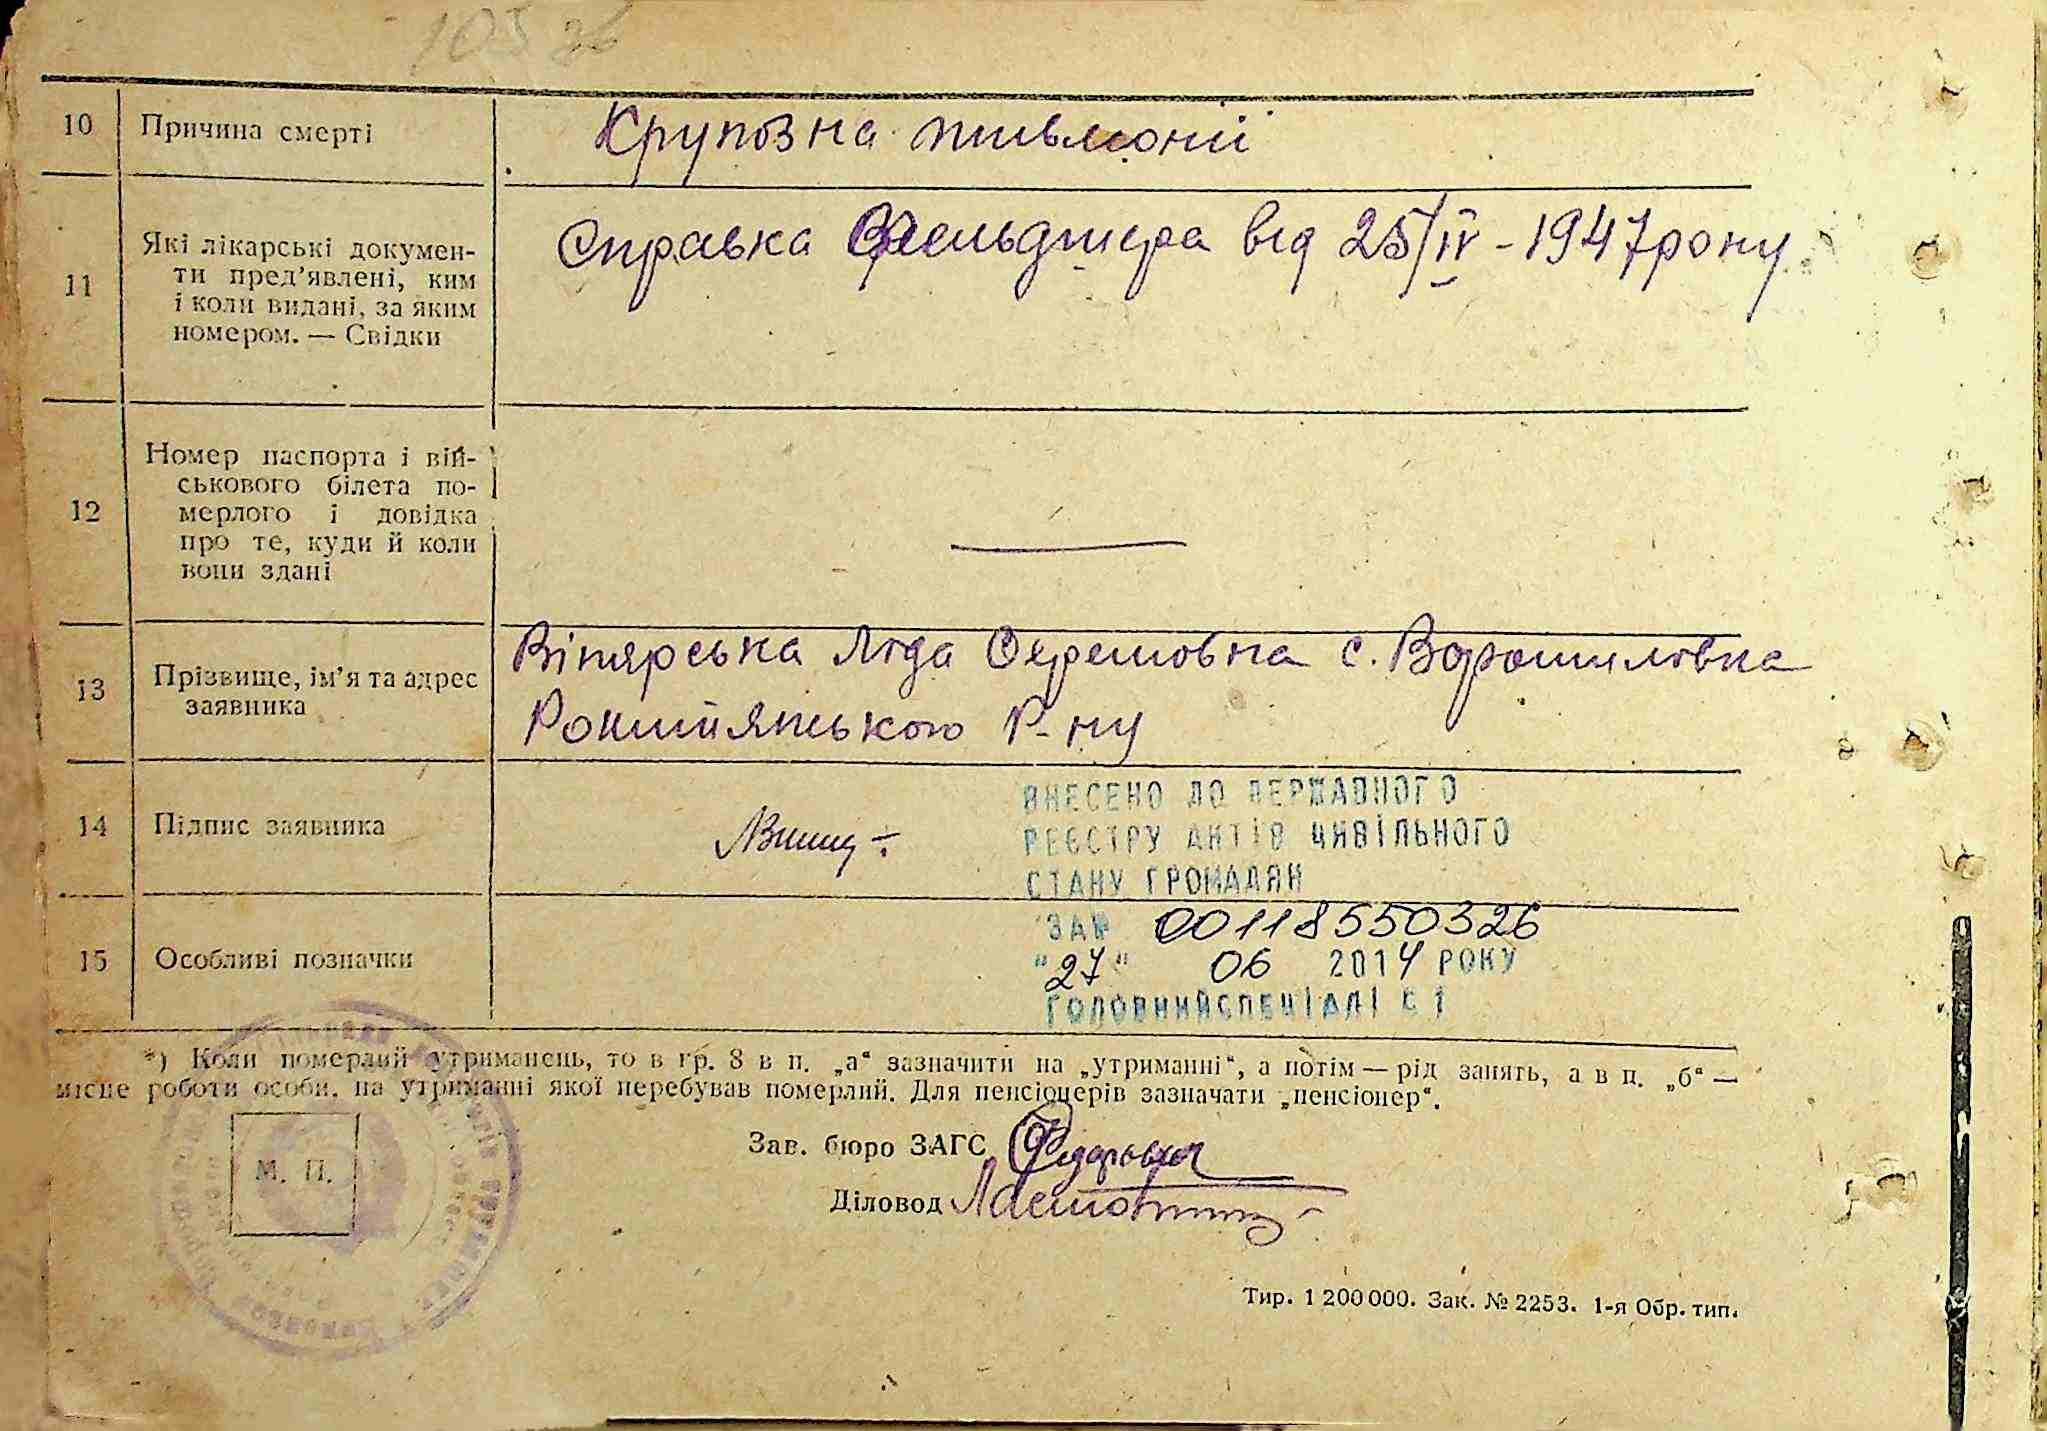 10 Причина смерті Крупозна пньвмонії
11 Які лікарські докумен-
ти пред'явлені, ким
і коли видані, за яким
номером. — Свідки
Справка Фельдшера від 25/IV - 1947 року
12 Номер паспорта і вій-
ськового білета по-
мерлого і довідка
про те, куди й коли
вони здані
—
13 Прізвище, ім'я та адрес
заявника
Ліда с. Ворошиловка
Р-ну
14 Підпис заявника
ВНЕСЕНО ДО ДЕРЖАВНОГО
РЕЄСТРУ АКТІВ ЦИВІЛЬНОГО
СТАНУ ГРОМАДЯН
ЗА № 00118550326
15 Особливі позначки
"27" 06 2014 РОКУ
ГОЛОВНИЙ СПЕЦІАЛІСТ
*) Коли померлий утриманець, то в гр. 8 в п. „а“ зазначити на „утриманні“, а потім — рід занять, а в п. „б“ —
місце роботи особи, на утриманні якої перебував померлий. Для пенсіонерів зазначати „пенсіонер“.
М. П.
Зав. бюро ЗАГС
Діловод
Тир. 1 200 000. Зак. № 2253. 1-я Обр. тип.